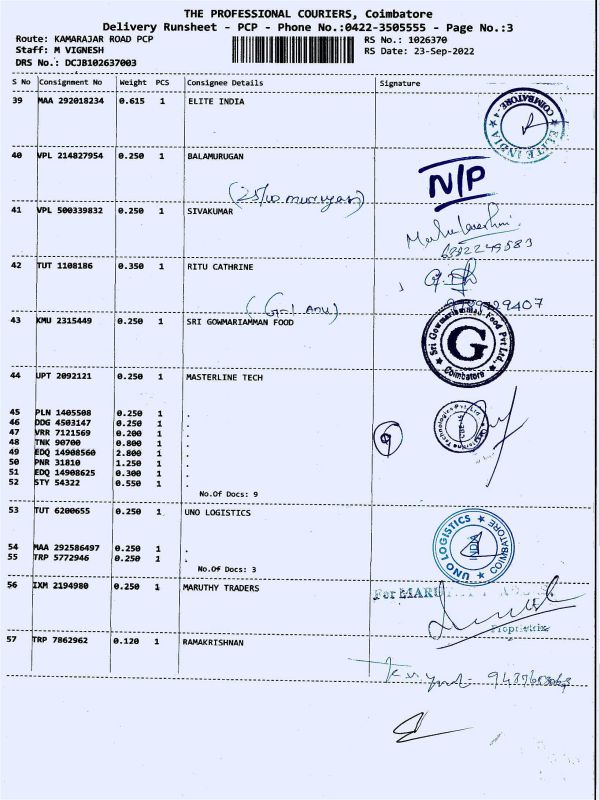 THE PROFESSIONAL COURIERS, Coimbatore
Delivery Runsheet - PCP - Phone No.:0422-3505555 - Page No.:3
Route: KAMARAJAR ROAD PCP
RS No.: 1026370
Staff: M VIGNESH
RS Date: 23-Sep-2022
DRS No.: DCJB102637003
S No Consignment No Weight PCS Consignee Details Signature
39 MAA 292018234 0.615 1 ELITE INDIA
ELITE INDIA ★ COIMBATORE - 4 ★
40 VPL 214827954 0.250 1 BALAMURUGAN
N/P
41 VPL 500339832 0.250 1 SIVAKUMAR
6382249583
42 TUT 1108186 0.350 1 RITU CATHRINE
(G-1 Anu)
43 KMU 2315449 0.250 1 SRI GOWMARIAMMAN FOOD
Sri Gowmariamman Food Pvt Ltd.,
G
★ Coimbatore ★
44 UPT 2092121 0.250 1 MASTERLINE TECH
45 PLN 1405508 0.250 1 .
46 DDG 4503147 0.250 1 .
47 VRR 7121569 0.200 1 .
48 TNK 90700 0.800 1 .
49 EDQ 14908560 2.800 1 .
50 PNR 31810 1.250 1 .
51 EDQ 14908625 0.300 1 .
52 STY 54322 0.550 1 .
No.Of Docs: 9
53 TUT 6200655 0.250 1 UNO LOGISTICS
54 MAA 292586497 0.250 1 .
55 TRP 5772946 0.250 1 .
No.Of Docs: 3
UNO LOGISTICS ★ COIMBATORE ★
INDIA
56 IXM 2194980 0.250 1 MARUTHY TRADERS
For
Proprietrix
57 TRP 7862962 0.120 1 RAMAKRISHNAN